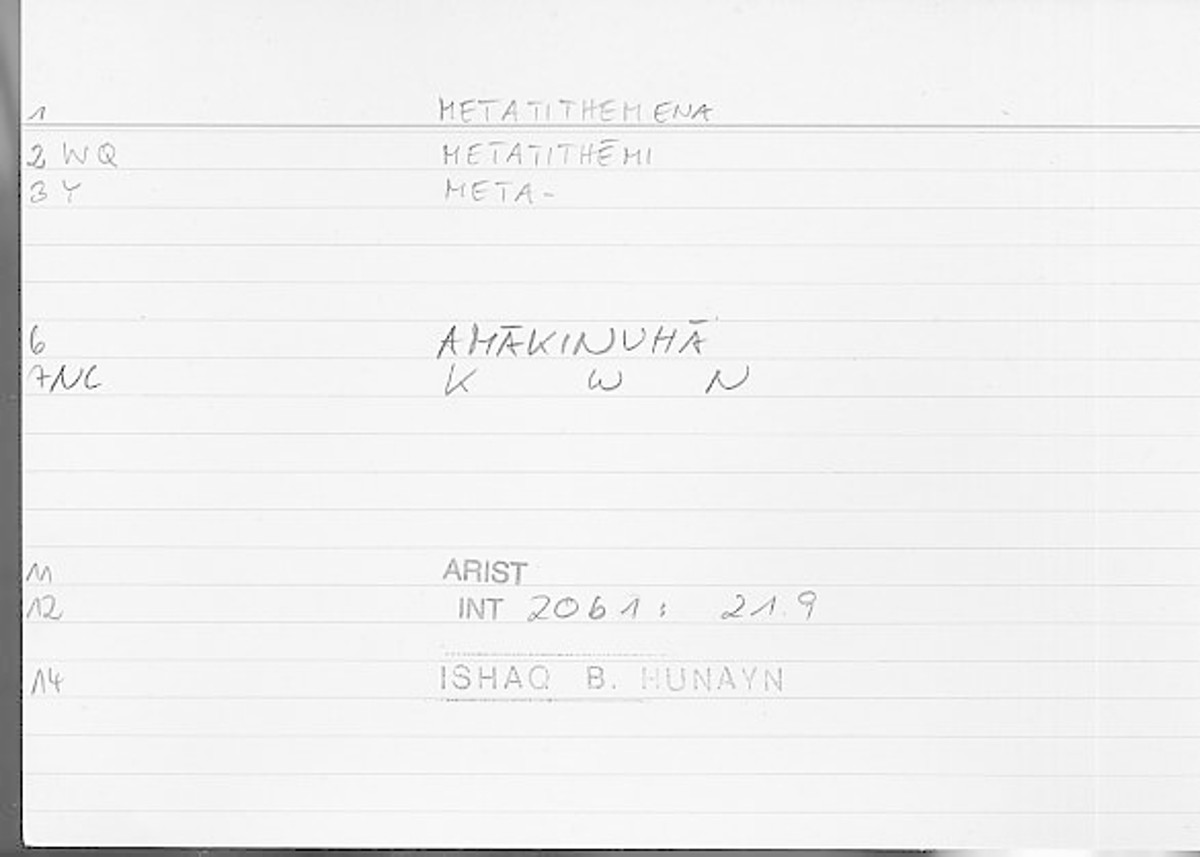 1 METATITHEMENA
2 WQ METATITHĒMI
3 Y META-
6 AMĀKINUHĀ
7NC K W N
11 ARIST
12 INT 2061: 21.9
14 ISHAQ B. HUNAYN